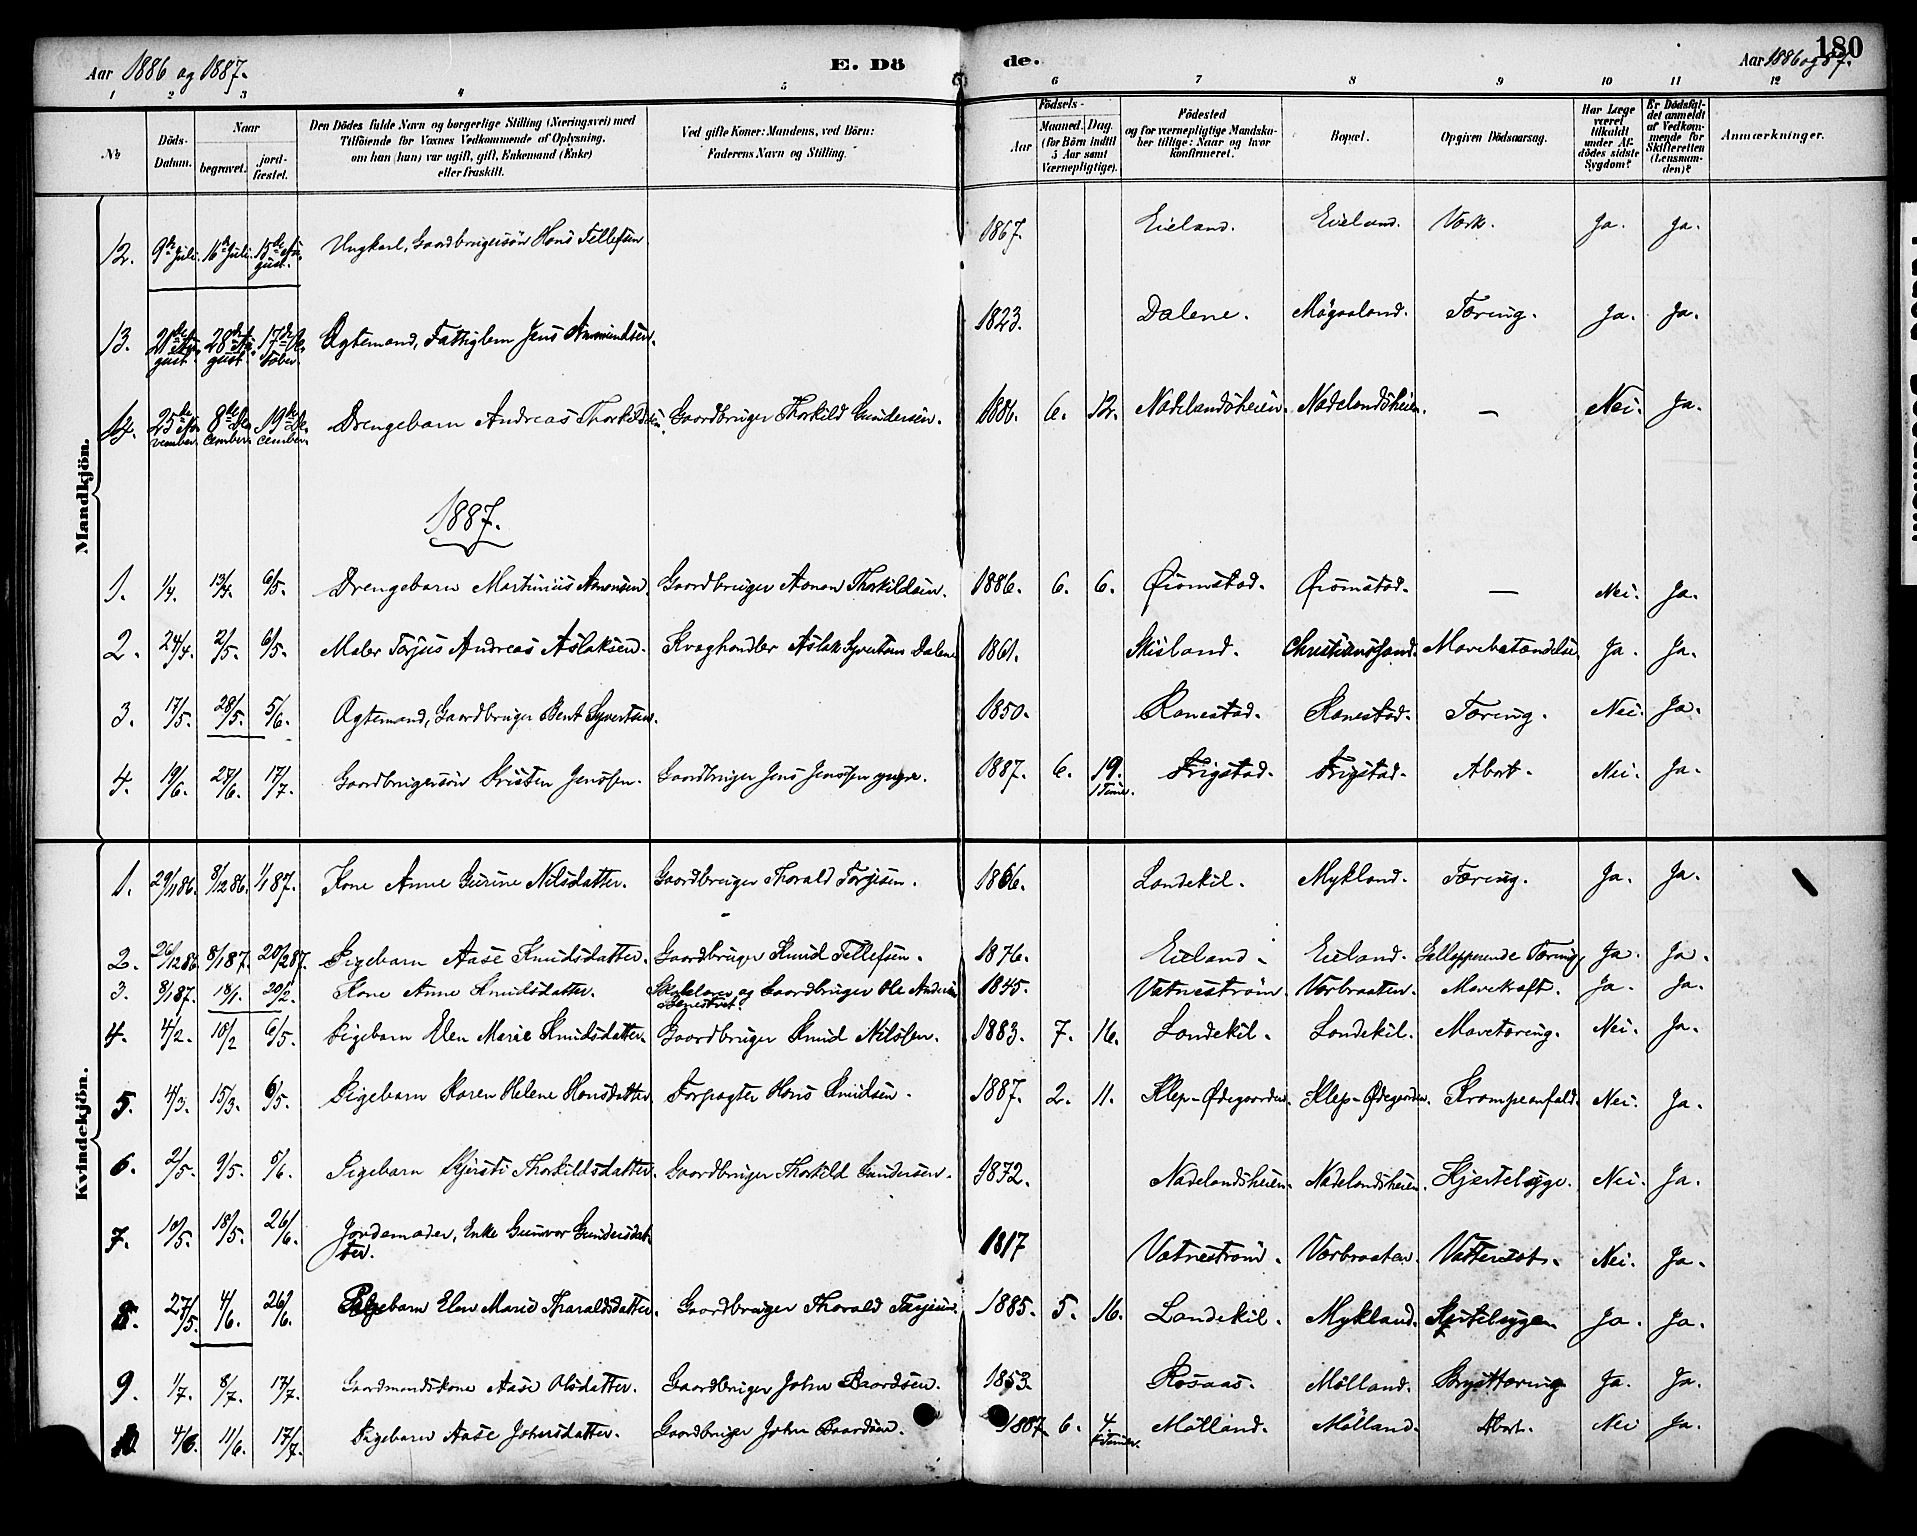 Aar 1886 og 1887.
E. Dö
de.
Aar 1886 og 87.
180
1 2 3 4 5 6 7 8 9 10 11 12
No
Döds-Datum.
Naar
begravet.
jordfæstet.
Den Dödes fulde Navn og borgerlige Stilling (Næringsvei) med
Tilföiende for Voxnes Vedkommende af Oplysning,
om han (hun) var ugift, gift, Enkemand (Enke)
eller fraskilt.
Ved gifte Koner: Mandens, ved Börn:
Faderens Navn og Stilling.
Födsels-
Aar
Maaned.
Dag.
(for Börn indtil
5 Aar samt
Værnepligtige).
Födested
og for værnepligtige Mandskaber tillige: Naar og hvor
konfirmeret.
Bopæl.
Opgiven Dödsaarsag.
Har Læge
været
tilkaldt
under Afdödes sidste
Sygdom?
Er Dödsfaldet anmeldt
af Vedkommende for
Skifteretten
(Lensmanden)?
Anmærkninger.
Mandkjön.
12. 9de Juli. 16de Juli. 15de August. Ungkarl, Gaardbrugersön Hans Tellefsen 1867. Eieland. Eieland. Værk. Ja. Ja.
13. 21de August. 28de August. 17de October. Ægtemand, Fattiglem Jens Anmundsen. 1823. Dalene. Møgaaland. Tæring. Ja. Ja.
14. 25de November. 8de December. 19de December. Drengebarn Andreas Thorkildsen. Gaardbruger Thorkild Gundersen. 1886. 6. 12. Nadelandsheien. Nadelandsheien. — Nei. Ja.
1887.
1. 1/4. 13/4. 6/5. Drengebarn Martinius Aanonsen. Gaardbruger Aanon Thorkildsen. 1886. 6. 6. Øiomstad. Øiomstad. — Nei. Ja.
2. 24/4. 2/5. 6/5. Maler Torjus Andreas Aslaksen. Kvæghandler Aslak Syvertsen Dalene 1861. Skisland. Christianssand. Mavebetændelse. Ja. Ja.
3. 17/5. 28/5. 5/6. Ægtemand, Gaardbruger Bent Syvertsen. 1850. Ranestad. Ranestad. Tæring. Nei. Ja.
4. 19/6. 27/6. 17/7. Gaardbrugersön Kristen Jenssen. Gaardbruger Jens Jenssen yngre. 1887. 6. 19. 1 Time. Frigstad. Frigstad. Abort. Nei. Ja.
Kvindekjön.
1. 29/11 86. 8/12 86. 1/1 87. Kone Anne Gurine Nilsdatter. Gaardbruger Tharald Torjesen. 1866. Landekil. Mykland. Tæring. Ja. Ja.
2. 26/12 86. 8/1 87. 20/2 87. Pigebarn Aase Knudsdatter. Gaardbruger Knud Tellefsen. 1876. Eieland. Eieland. Gallopperende Tæring. Ja. Ja.
3. 8/1 87. 18/1. 20/2. Kone Anne Knudsdatter. Skolelærer og Gaardbruger Ole Andersen 1845. Vatnestrøm. Værbraaten. Mavekræft. Ja. Ja.
4. 4/2. 10/2 6/5. Pigebarn Elen Marie Knudsdatter. Gaardbruger Knud Nilssen. 1883. 7. 16. Landekil. Landekil. Mavetæring. Nei. Ja.
5. 4/3. 15/3. 6/5. Pigebarn Karen Helene Hansdatter. Forpagter Hans Knudsen. 1887. 2. 11. Klep-Ødegaarden. Klep-Ødegaarden. Krampeanfald. Nei. Ja.
6. 2/5. 9/5. 5/6. Pigebarn Kjersti Thorkildsdatter. Gaardbruger Thorkild Gundersen. 1872. Nadelandsheien. Nadelandsheien. Hjertesyge. Nei. Ja.
7. 10/5. 18/5. 26/6. Jordemoder, Enke Gunvor Gundersdatter. 1817 Vatnestrøm. Værbraaten. Vattersot. Nei. Ja.
8. 27/5. 4/6. 26/6. Pigebarn Elen Marie Tharaldsdatter. Gaardbruger Tharald Torjesen. 1885. 5. 16. Landekil. Mykland. Ja. Ja.
9. 1/7. 8/7. 17/7. Gaardmandskone Aase Olsdatter. Gaardbruger John Baardsen. 1853. Rosaas. Mølland. Brysttæring Ja. Ja.
10. 4/6. 11/6. 17/7. Pigebarn Aase Johnsdatter. Gaardbruger John Baardsen. 1887. 6. 4. Mølland. Mølland. Abort. Nei Ja.